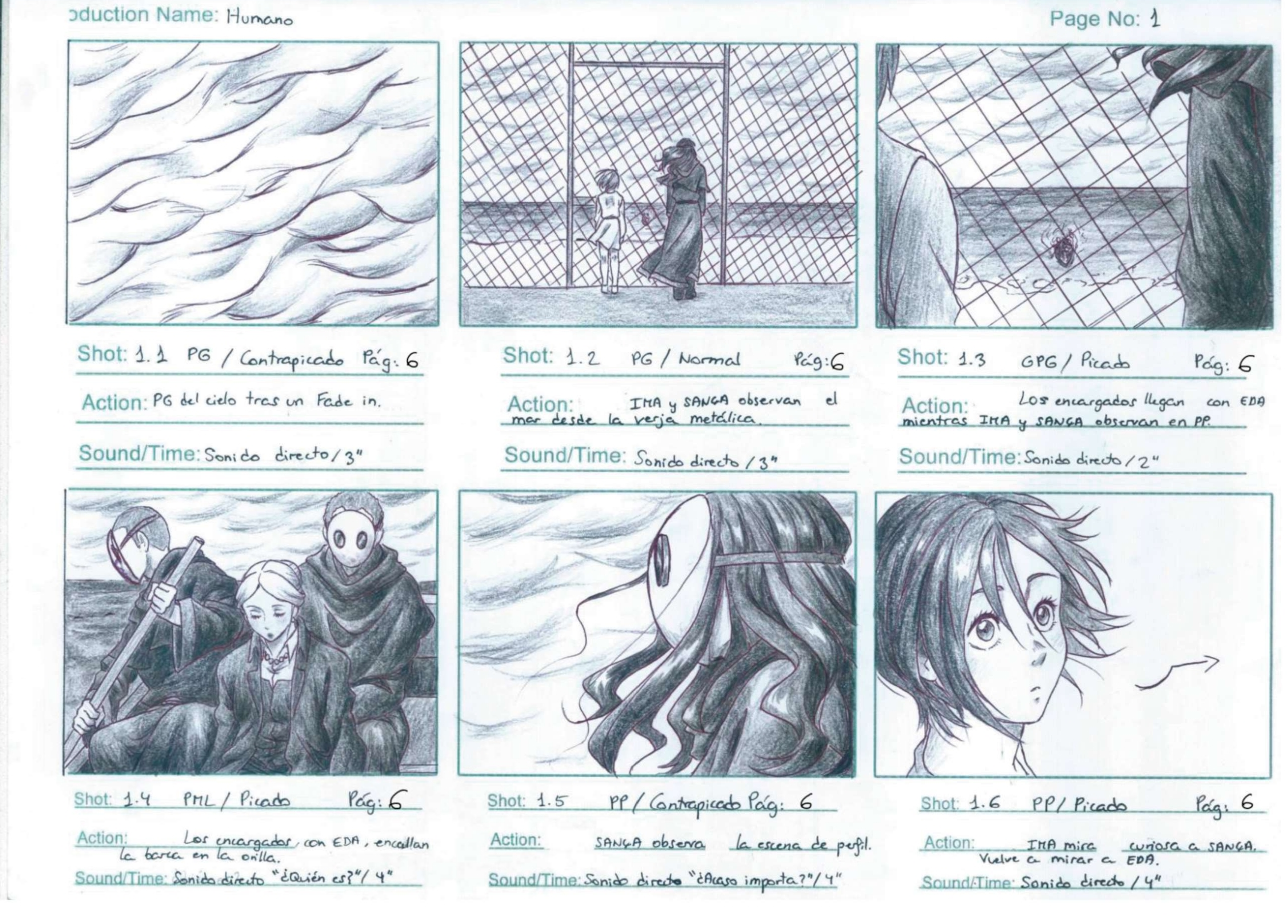 oduction Name: Humano
Page No: 1
Shot: 1.1 PG / Contrapicado Pág: 6
Action: PG del cielo tras un Fade in.
Sound/Time: Sonido directo / 3"
Shot: 1.2 PG / Normal Pág: 6
Action: IMA y SANGA observan el
mar desde la verja metálica.
Sound/Time: Sonido directo / 3"
Shot: 1.3 GPG / Picado Pág: 6
Action: Los encargados llegan con EDA
mientras IMA y SANGA observan en PP.
Sound/Time: Sonido directo / 2"
Shot: 1.4 PML / Picado Pág: 6
Action: Los encargados, con EDA, encallan
la barca en la orilla.
Sound/Time: Sonido directo "¿Quién es?" / 4"
Shot: 1.5 PP / Contrapicado Pág: 6
Action: SANGA observa la escena de perfil.
Sound/Time: Sonido directo "¿Acaso importa?" / 4"
Shot: 1.6 PP / Picado Pág: 6
Action: IMA mira curiosa a SANGA.
Vuelve a mirar a EDA.
Sound/Time: Sonido directo / 4"